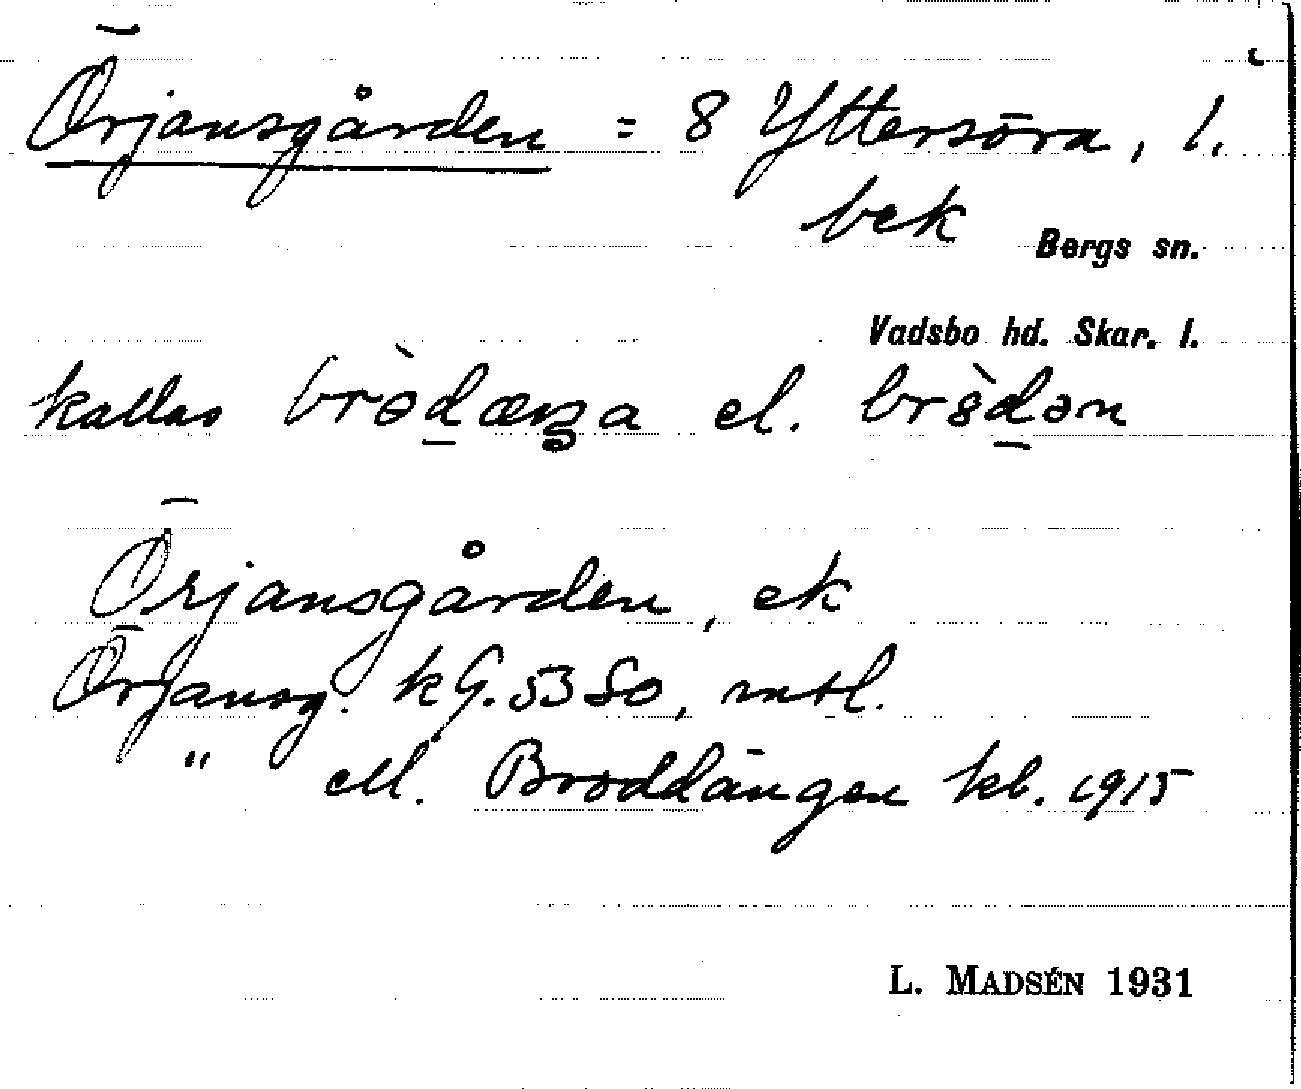 Örjansgården = 8 Yttersöra, l.
bek
Bergs sn.
Vadsbo hd. Skar. l.
kallas el.
Örjansgården, ek
Örjansg. kG. 53 So, mtl.
" ell. Broddängen kb. 1915
L. MADSÉN 1931